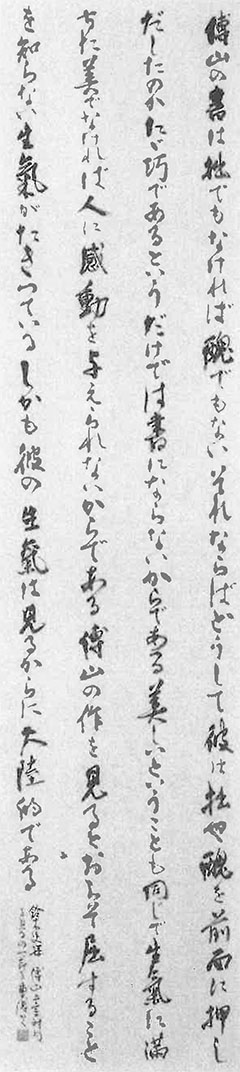 傅山の書は拙でもなければ醜でもないそれならばどうして彼は拙や醜を前面に押し
だしたのかたゞ巧であるというだけでは書にならないからである美しいということも同じで生氣に満
ちた美でなければ人に感動を与えられないからである傅山の作を見るとおよそ屈すること
を知らない生氣がたぎつているしかも彼の生氣は見るからに大陸的である